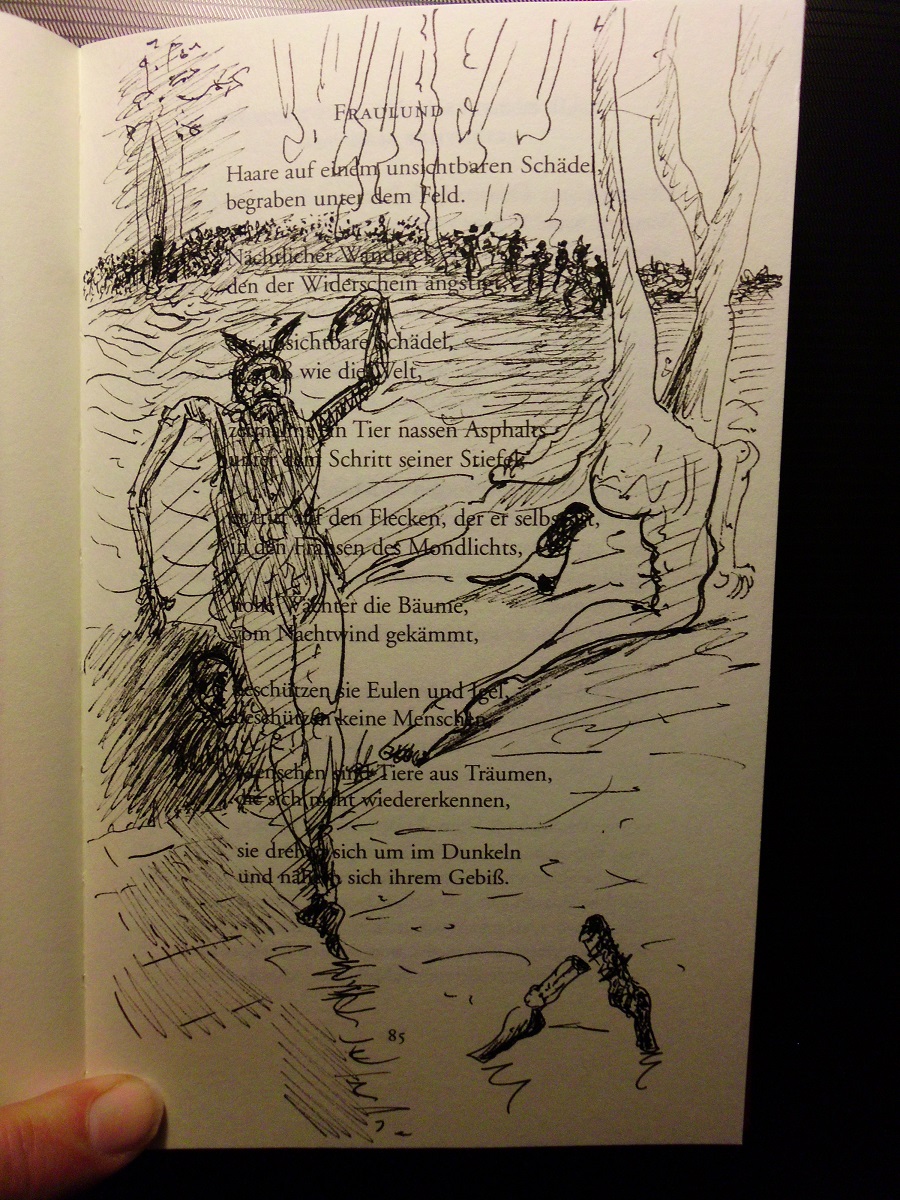 FRAULUND
Haare auf einem unsichtbaren Schädel,
begraben unter dem Feld.
Nächtlicher Wanderer,
den der Widerschein ängstigt,
der unsichtbare Schädel,
wie die Welt,
ein Tier nassen Asphalts
unter dem Schritt seiner Stiefel,
er tritt auf den Flecken, der er selbst ist,
in den Fransen des Mondlichts,
Wächter die Bäume,
vom Nachtwind gekämmt,
beschützen sie Eulen und Igel,
beschützen keine Menschen,
Menschen sind Tiere aus Träumen,
die sich nicht wiedererkennen,
sie drehen sich um im Dunkeln
und nähern sich ihrem Gebiß.
85